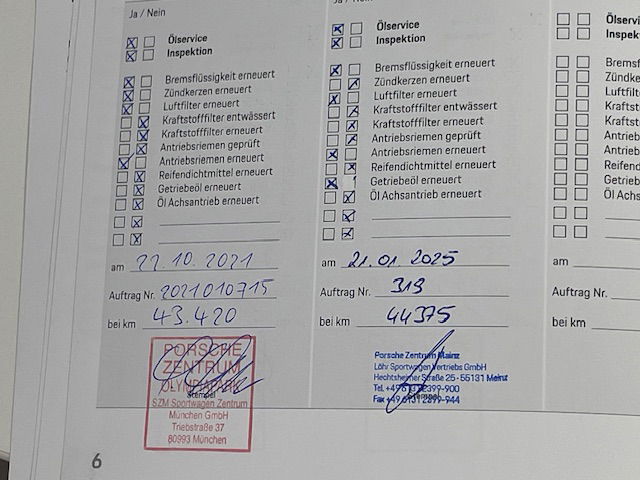 Ja / Nein
Ölservice
Inspektion
Bremsflüssigkeit erneuert
Zündkerzen erneuert
Luftfilter erneuert
Kraftstofffilter entwässert
Kraftstofffilter erneuert
Antriebsriemen geprüft
Antriebsriemen erneuert
Reifendichtmittel erneuert
Getriebeöl erneuert
Öl Achsantrieb erneuert
am 22.10.2021
Auftrag Nr. 2021010715
bei km 43.420
PORSCHE
ZENTRUM
OLYMPIAPARK
Stempel
SZM Sportwagen Zentrum
München GmbH
Triebstraße 37
80993 München
6
Ja / Nein
Ölservice
Inspektion
Bremsflüssigkeit erneuert
Zündkerzen erneuert
Luftfilter erneuert
Kraftstofffilter entwässert
Kraftstofffilter erneuert
Antriebsriemen geprüft
Antriebsriemen erneuert
Reifendichtmittel erneuert
Getriebeöl erneuert
Öl Achsantrieb erneuert
am 21.01.2025
Auftrag Nr. 319
bei km 44375
Porsche Zentrum Mainz
Löhr Sportwagen Vertriebs GmbH
Hechtsheimer Straße 25 - 55131 Mainz
Tel. +49 6131 2399-900
Fax +49 6131 2399-944
Stempel
Ölservi
Inspek
Bremsf
Zündke
Luftfilt
Kraftst
Kraftst
Antrieb
Antrieb
Reifend
Getrieb
Öl Achs
am
Auftrag Nr.
bei km